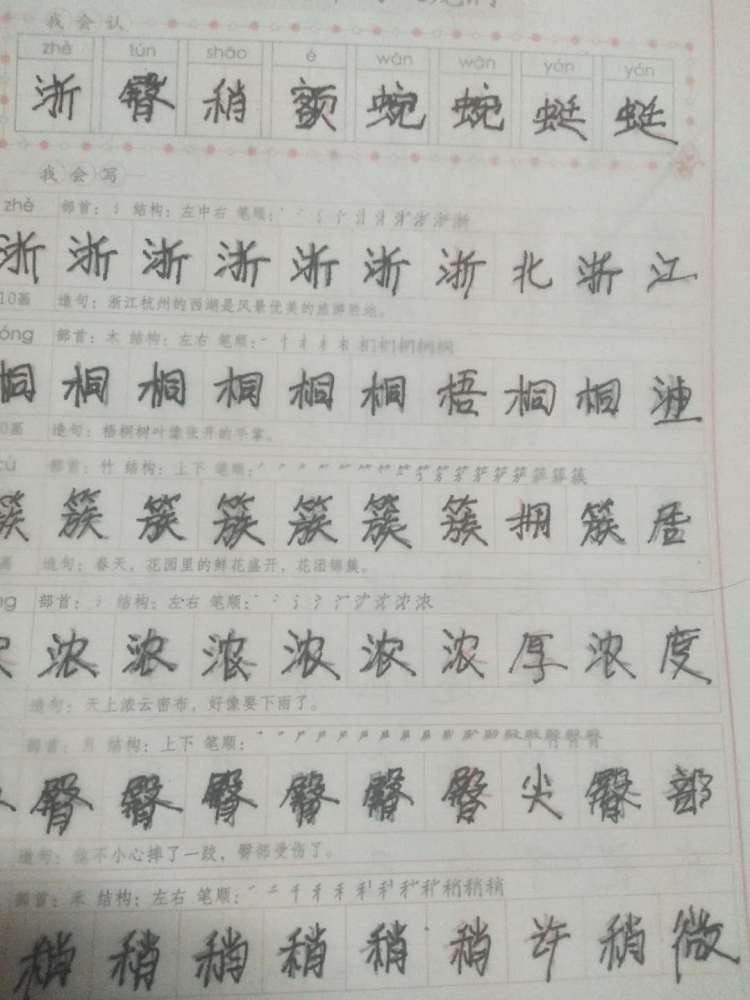 我会认
zhè tún shāo é wān wān yán yán
浙 臀 稍 额 蜿 蜿 蜒 蜒
我会写
zhè 部首：氵 结构：左中右 笔顺：
浙 浙 浙 浙 浙 浙 浙 北 浙 江
10画 造句：浙江杭州的西湖是风景优美的旅游胜地。
óng 部首：木 结构：左右 笔顺：
桐 桐 桐 桐 桐 桐 梧 桐 桐
0画 造句：梧桐树叶像张开的手掌。
cù 部首：竹 结构：上下 笔顺：
簇 簇 簇 簇 簇 簇 簇 拥 簇 居
画 造句：春天，花园里的鲜花盛开，花团锦簇。
ng 部首：氵 结构：左右 笔顺：
浓 浓 浓 浓 浓 浓 厚 浓 度
造句：天上浓云密布，好像要下雨了。
部首：月 结构：上下 笔顺：
臀 臀 臀 臀 臀 臀 尖 臀 部
造句：他不小心摔了一跤，臀部受伤了。
部首：禾 结构：左右 笔顺：
稍 稍 稍 稍 稍 稍 许 稍 微